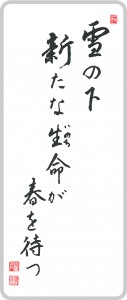 雪の下
新たな生命が
いのち
春を待つ